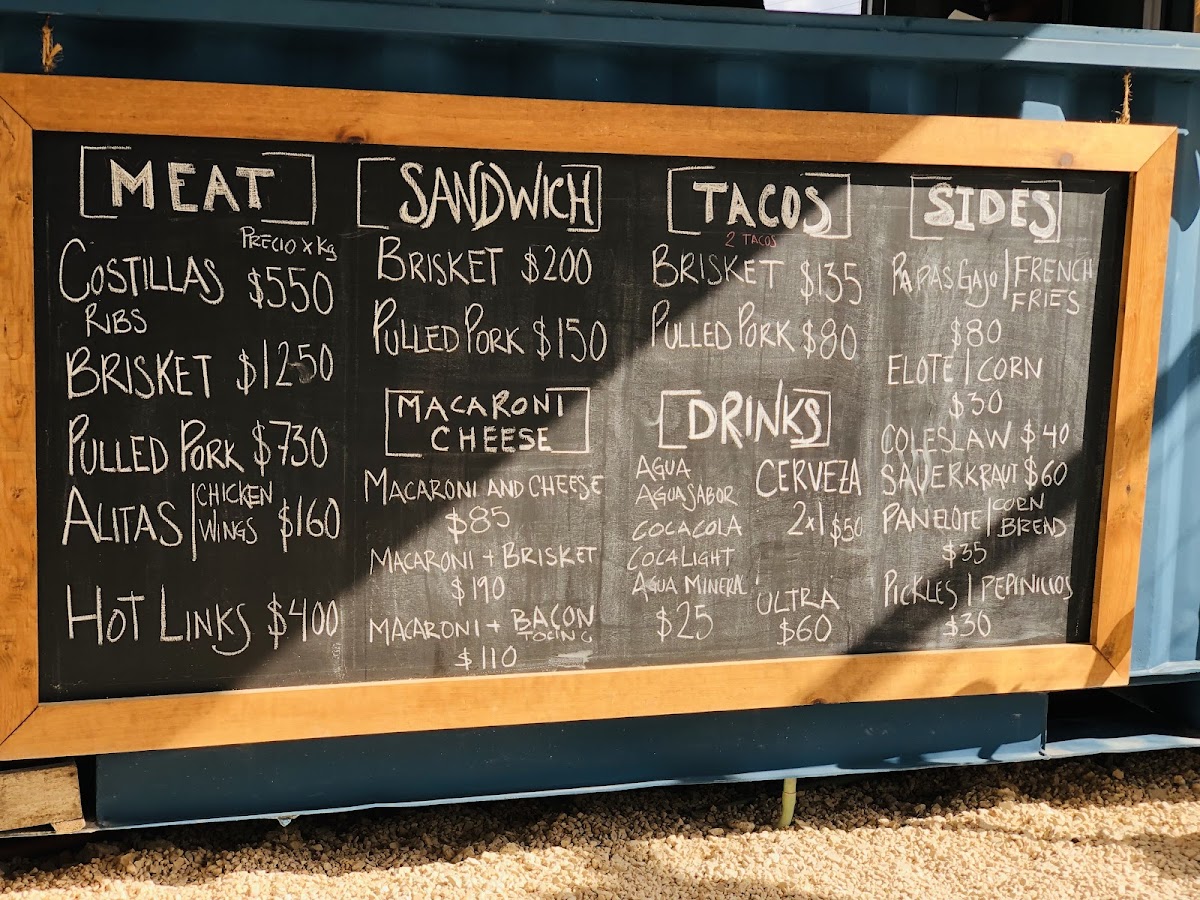 MEAT
PRECIO X Kg
COSTILLAS $550
RIBS
BRISKET $1250
PULLED PORK $730
ALITAS | CHICKEN WINGS $160
HOT LINKS $400
SANDWICH
BRISKET $200
PULLED PORK $150
MACARONI
CHEESE
MACARONI AND CHEESE
$85
MACARONI + BRISKET
$190
MACARONI + BACON
TOCINO
$110
TACOS
2 TACOS
BRISKET $135
PULLED PORK $80
DRINKS
AGUA
AGUA SABOR
COCACOLA
COCA LIGHT
AGUA MINERAL
$25
CERVEZA
2x1 $50
ULTRA
$60
SIDES
PAPAS GAJO | FRENCH FRIES
$80
ELOTE | CORN
$30
COLESLAW $40
SAUERKRAUT $60
PAN ELOTE | CORN BREAD
$35
PICKLES | PEPINILLOS
$30